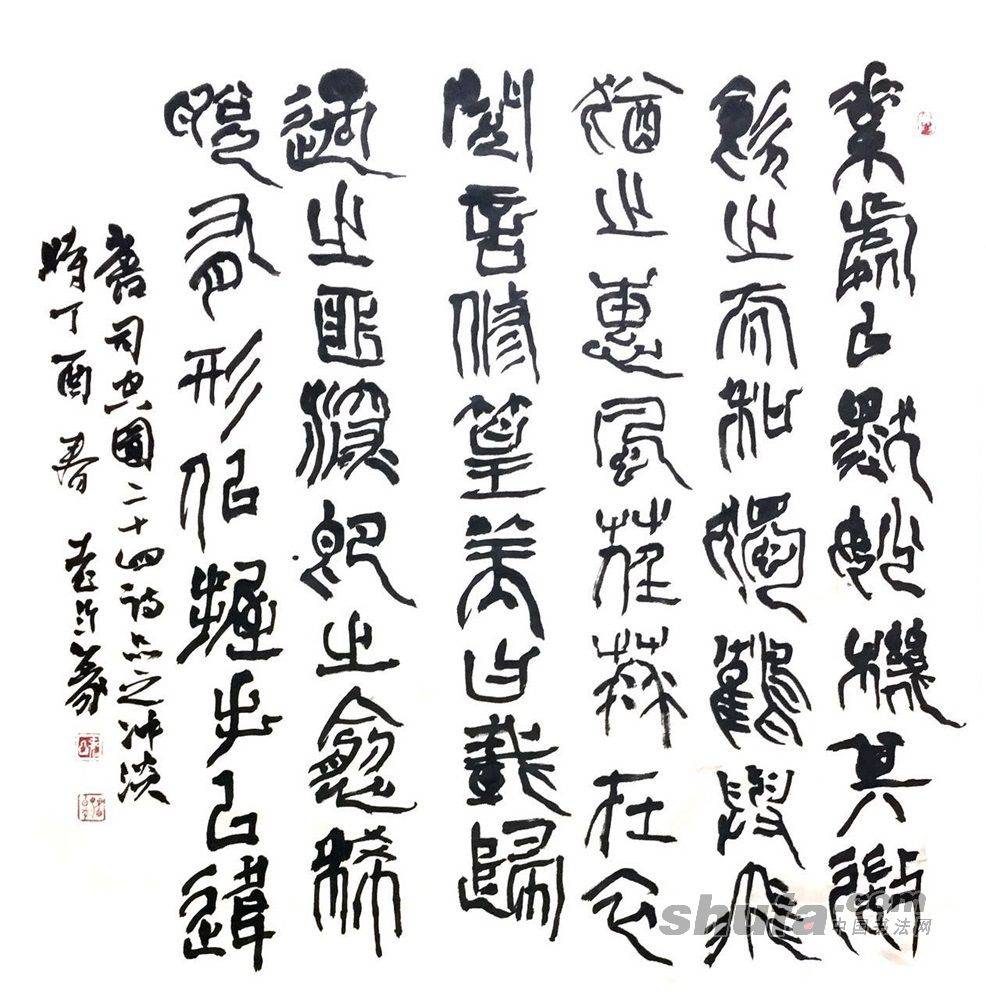 素處以默妙機其微
飲之太和獨鶴與飛
猶之惠風荏苒在衣
閱音修篁美曰載歸
遇之匪深即之愈稀
脫有形似握手已違
書司空圖二十四詩品之沖淡
時丁酉春
shufa.com
中国书法网